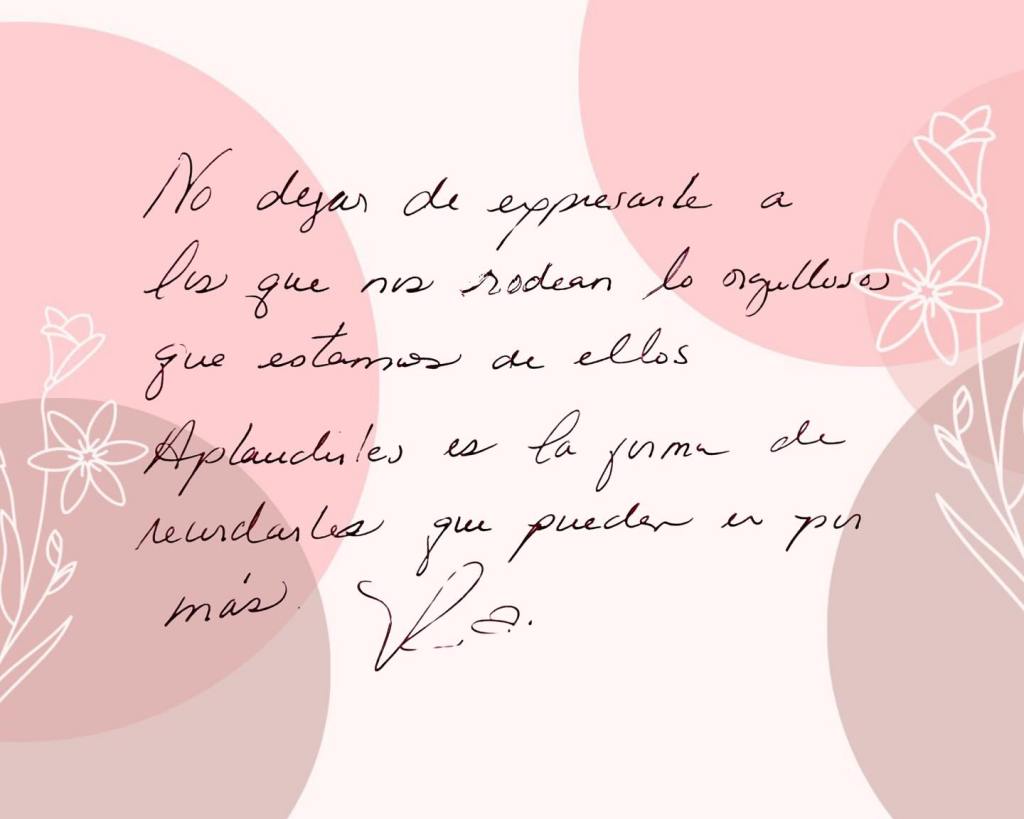 No dejar de expresarle a
los que nos rodean lo orgullosos
que estamos de ellos
Aplaudirles es la forma de
recordarles que pueden ir por
más.